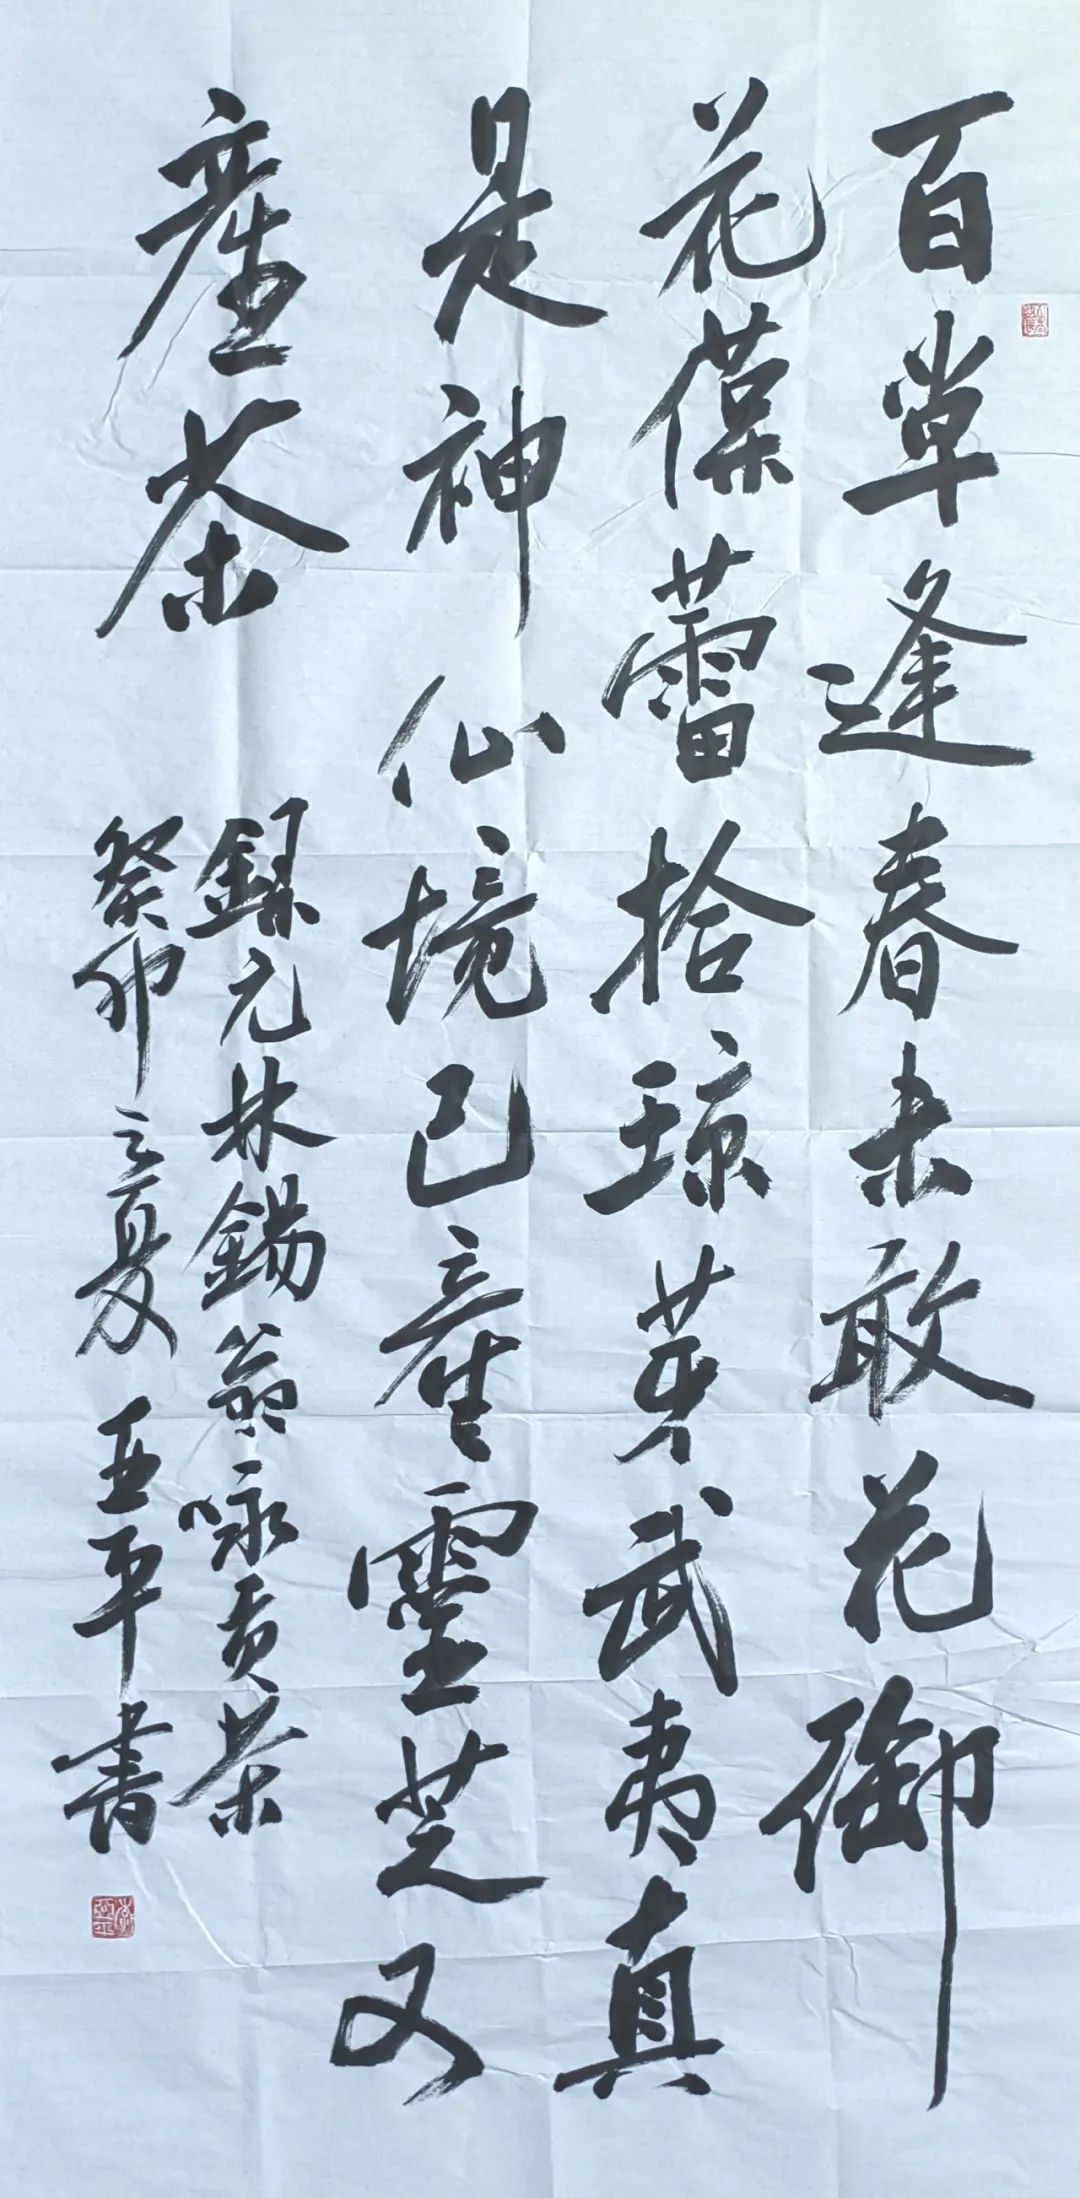 百草逢春未敢花御
花葆蕾拾琼芽武夷真
是神仙境已產靈芝又
產茶
録元林錫翁咏貢茶
癸卯立夏 亚平書